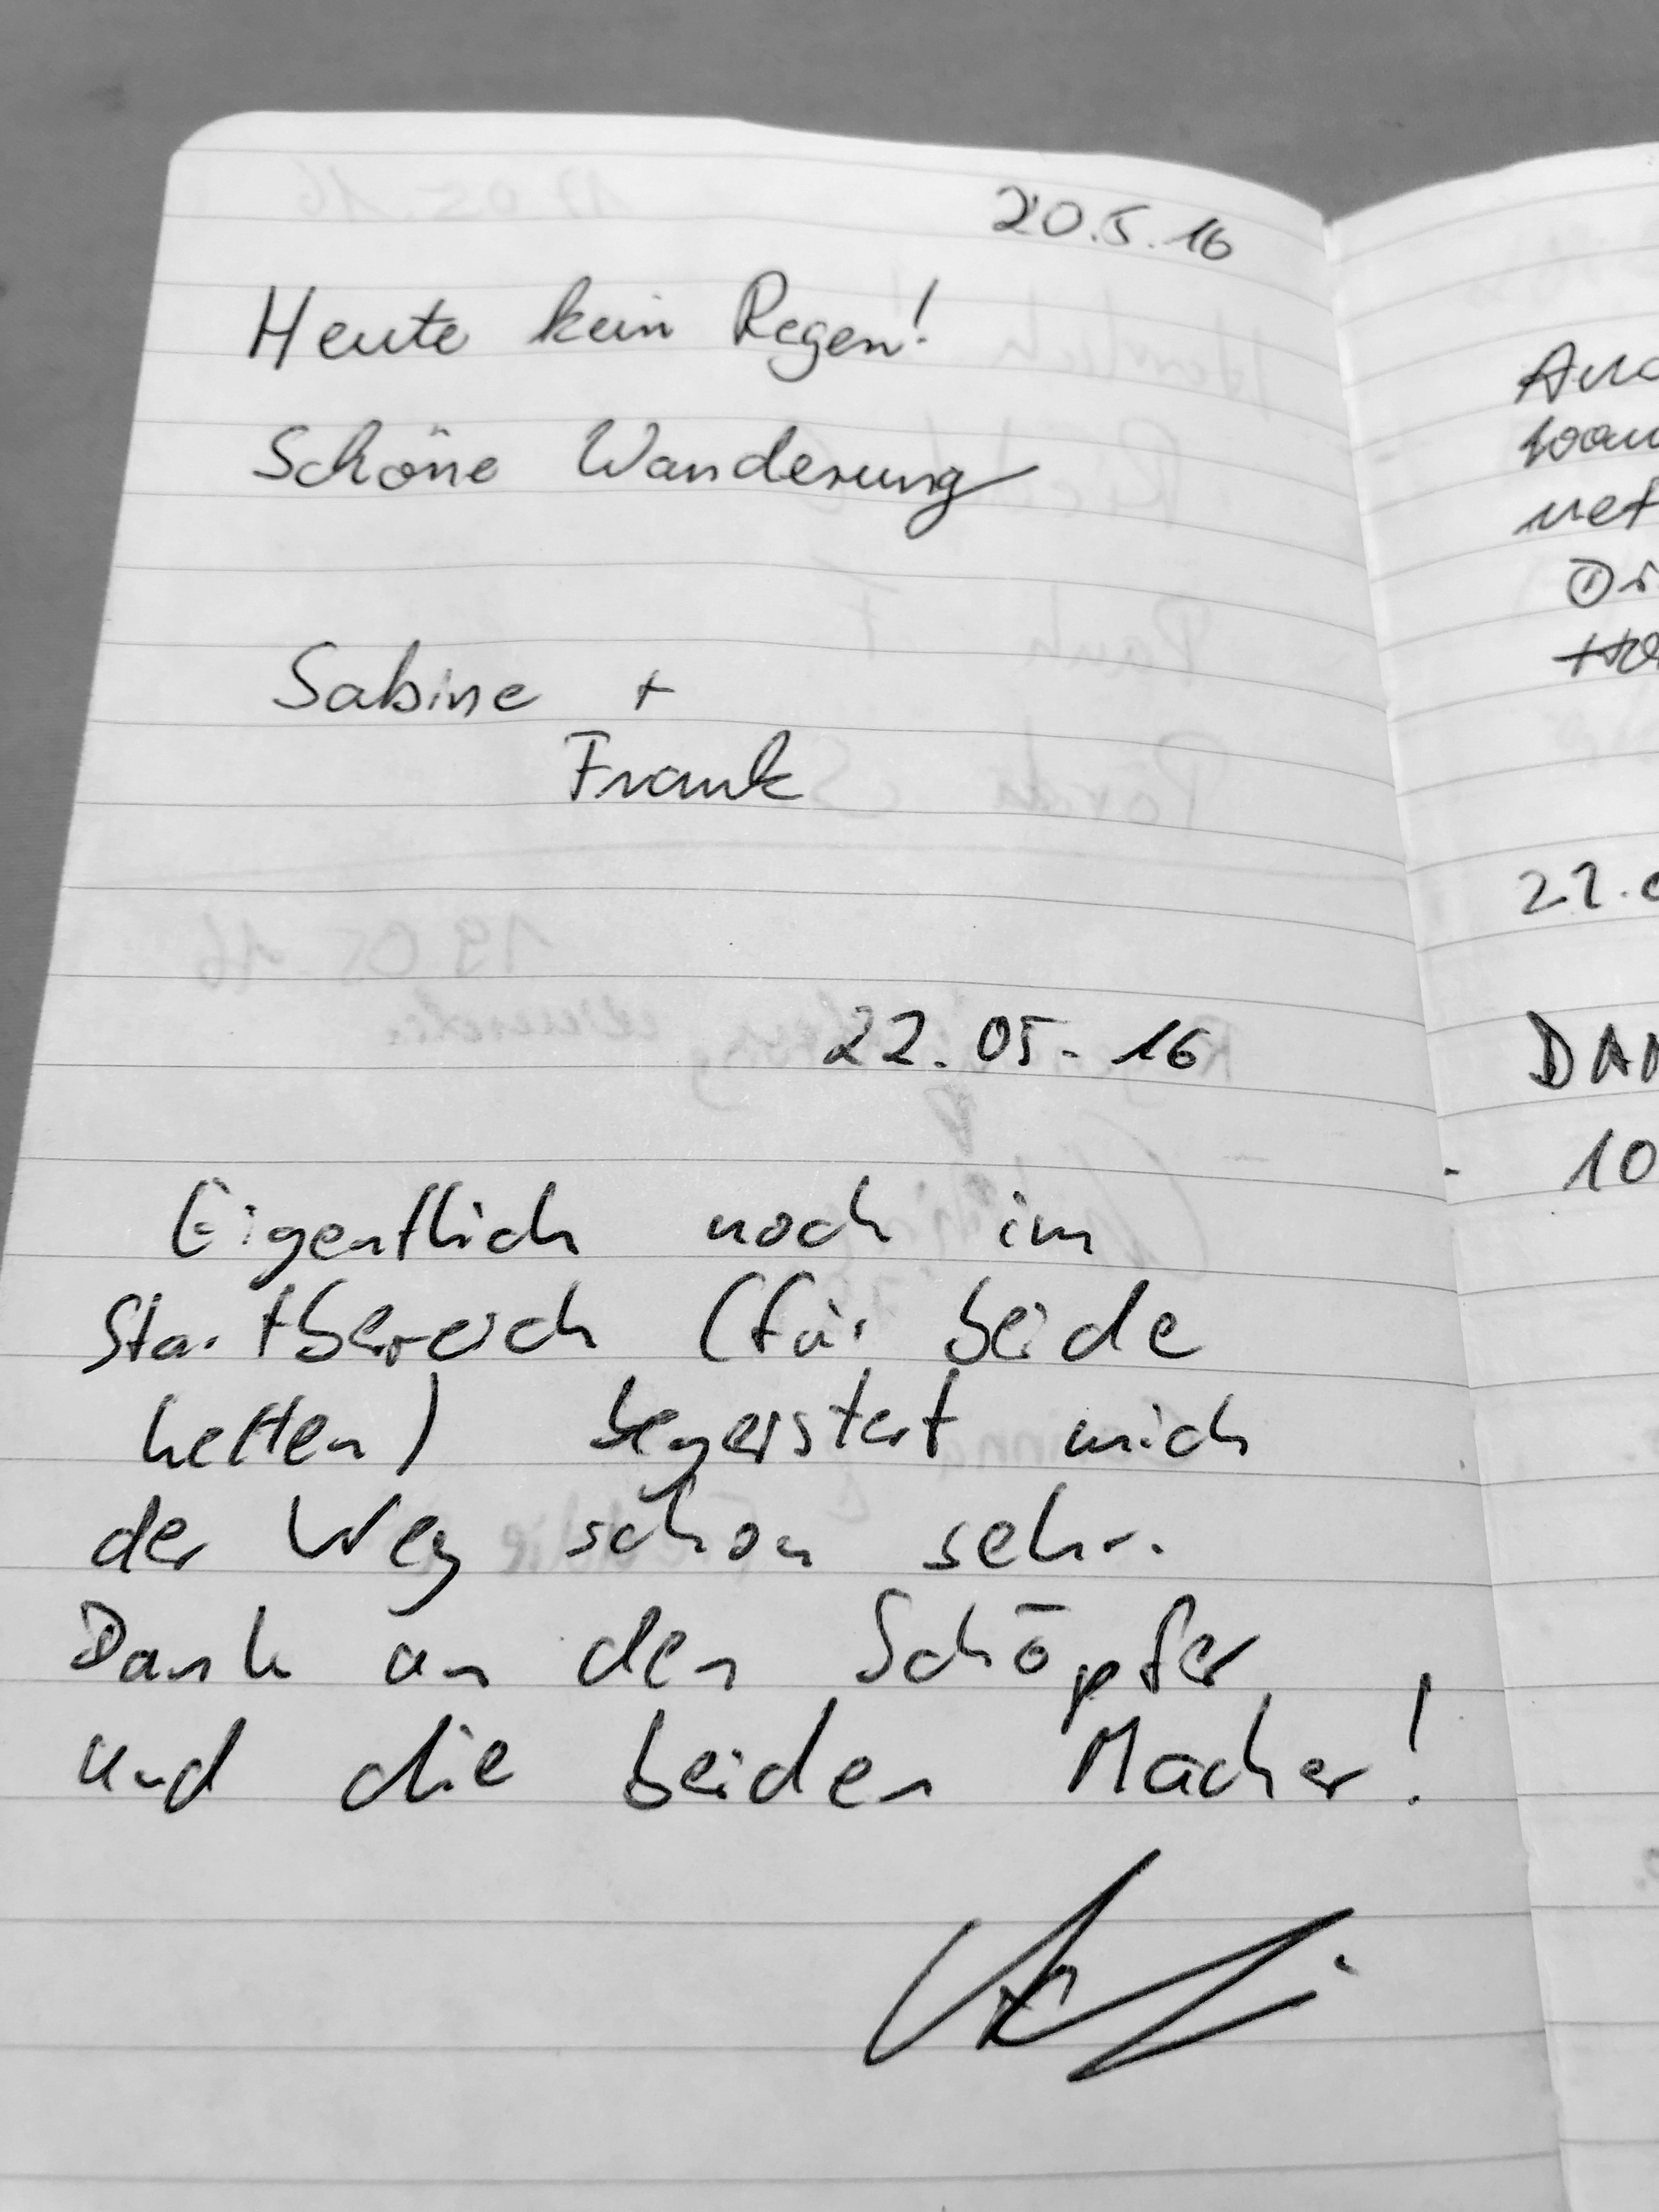 20.5.16
Heute kein Regen!
Schöne Wanderung
Sabine +
Frank
22.05.16
Eigentlich noch im
Startbereich (für beide
hetten) begeistert mich
der Weg schon sehr.
Dank an den Schöpfer
und die beiden Macher!
DAN
10